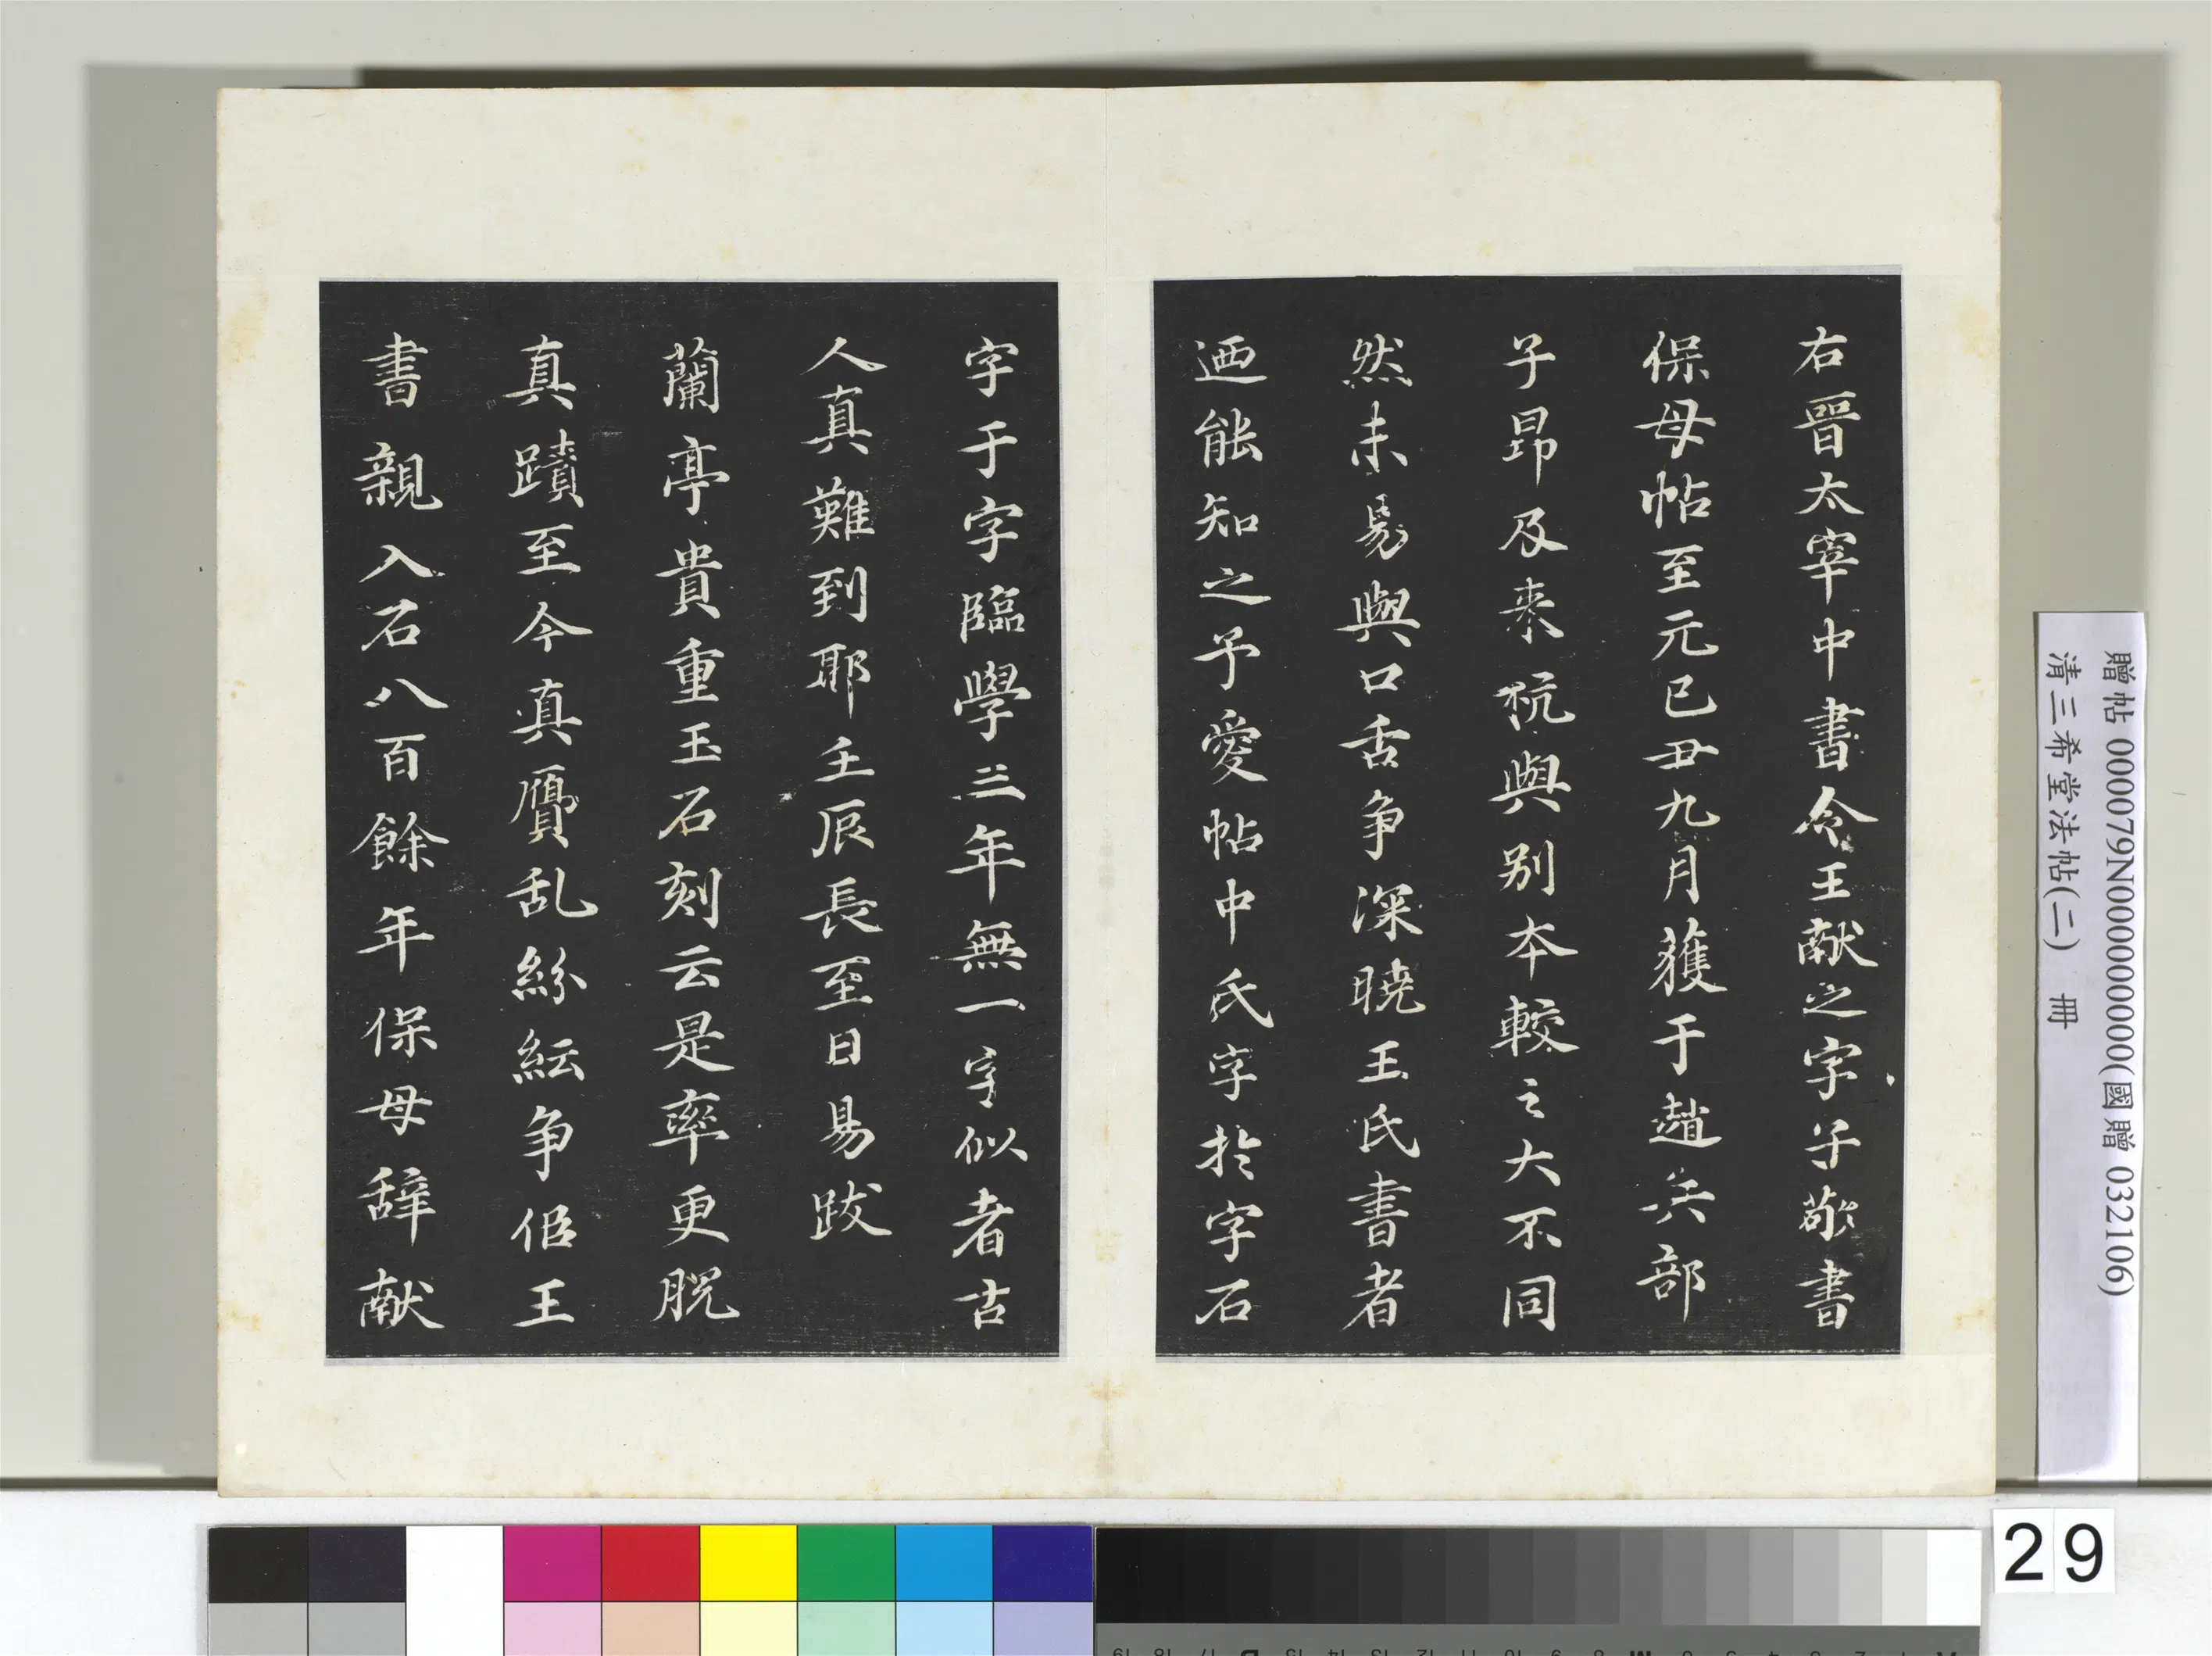 右晉太宰中書令王献之字子敬書
保母帖至元己丑九月獲于趙兵部
子昂及来杭與别本較之大不同
然未易與口舌争深曉王氏書者
迺能知之予愛帖中氏字於字石
字于字臨學三年無一字似者古
人真難到耶壬辰長至日易跋
蘭亭貴重玉石刻云是率更脱
真蹟至今真贗乱紛紜争侣王
書親入石八百餘年保母辞献
贈帖 000079N000000000(國贈 032106)
清三希堂法帖(二) 冊
29